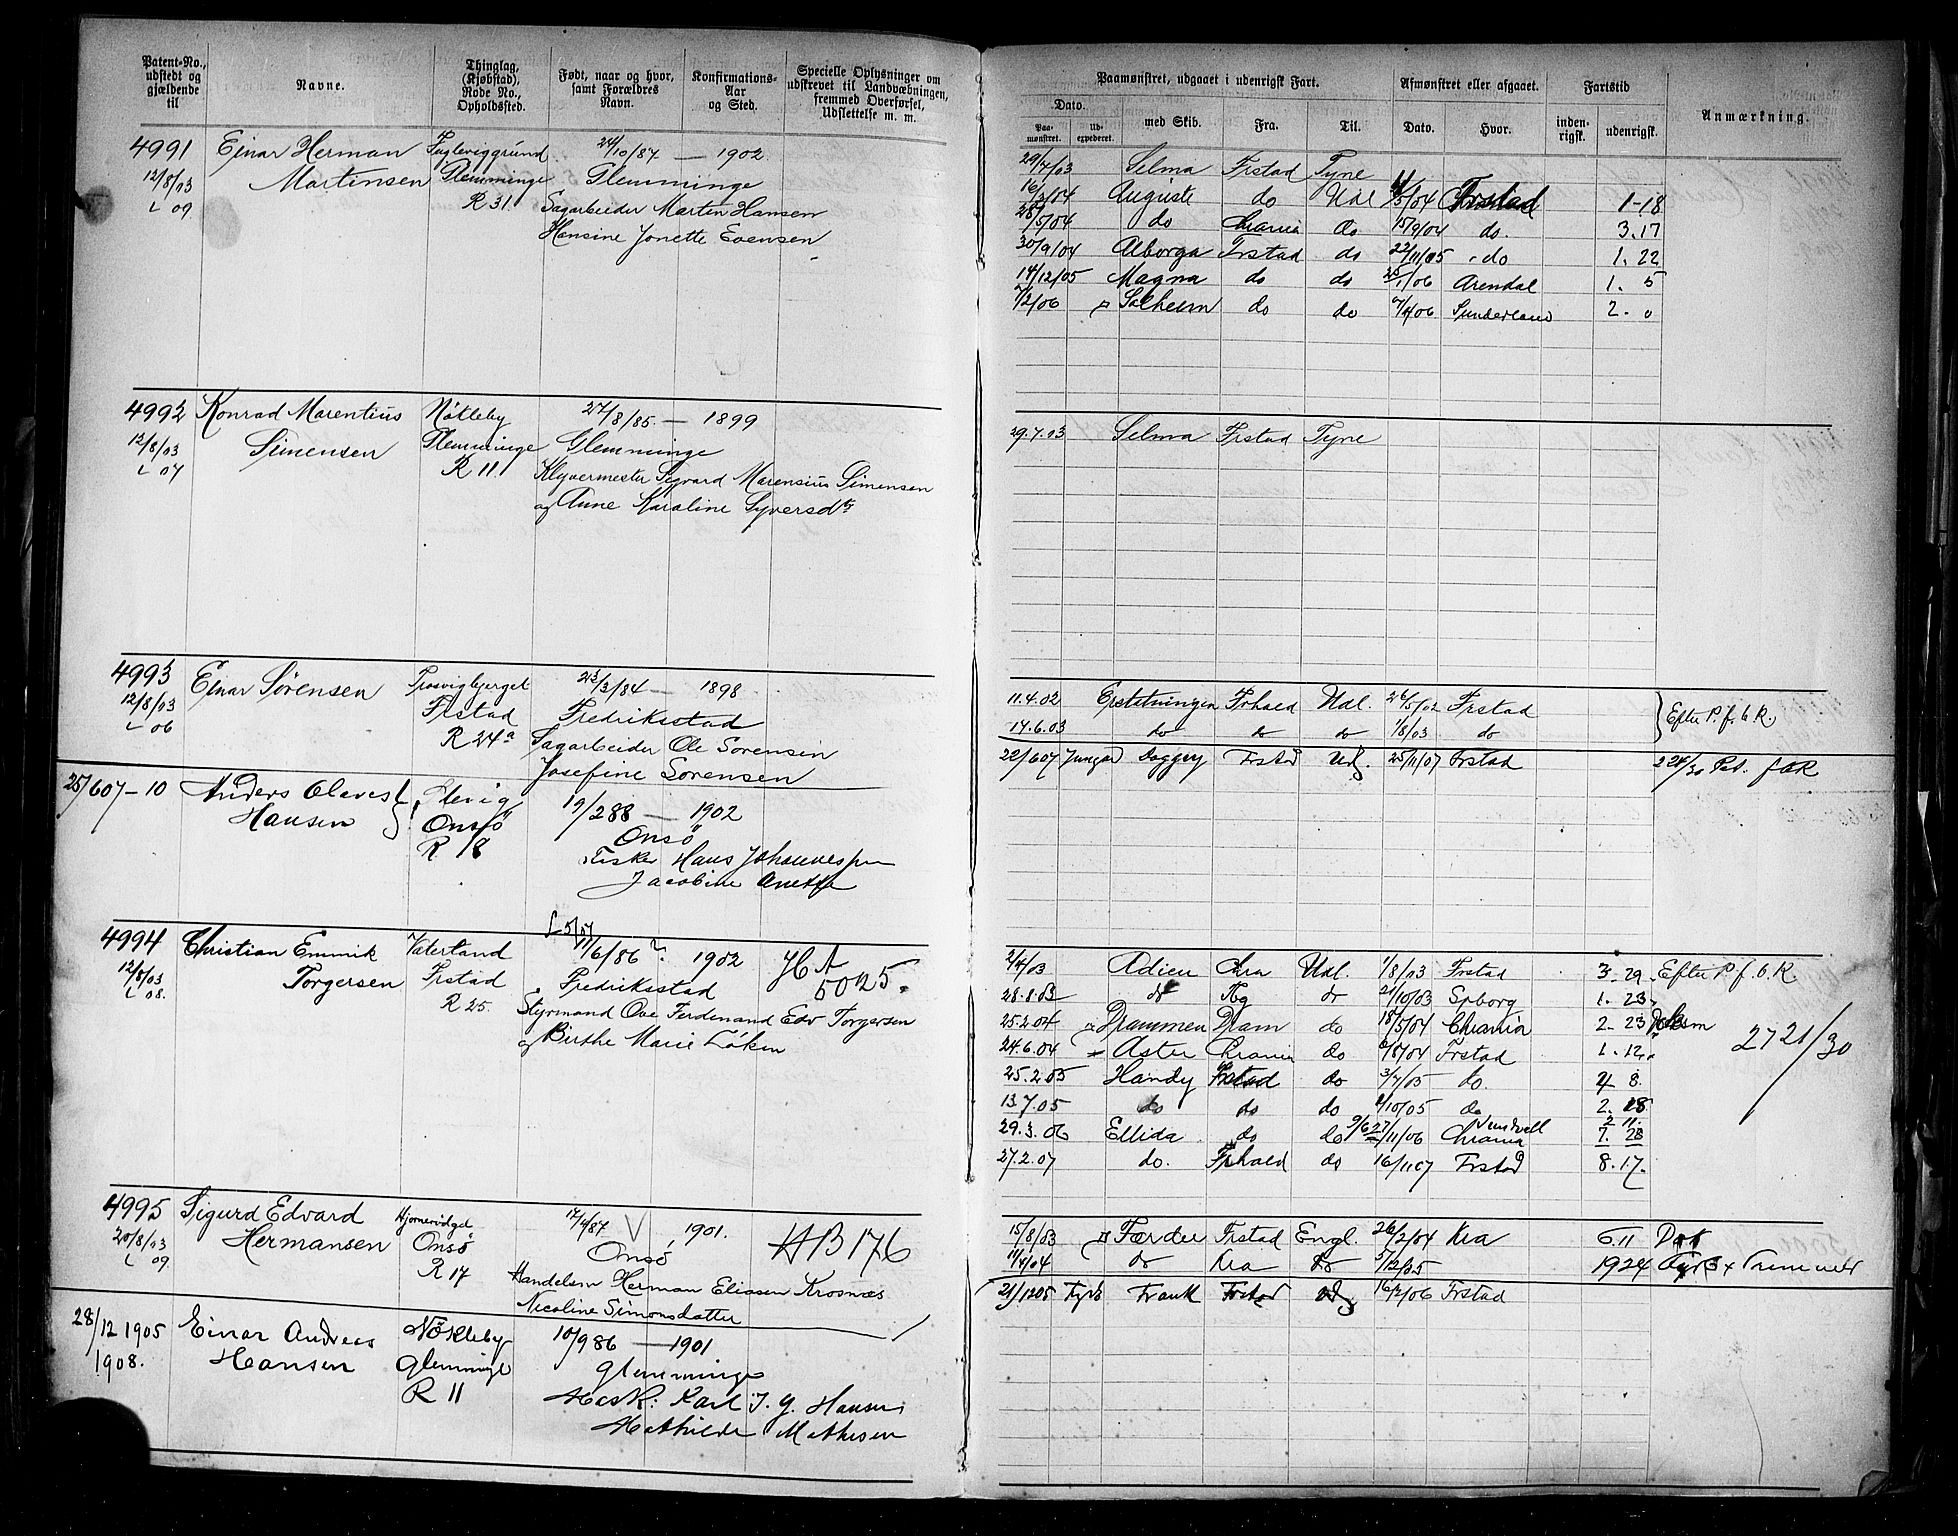 Patent-No., udstedt og gjældende til
Navne.
Thinglag, (Kjøbstad), Rode No., Opholdssted.
Født, naar og hvor, samt Forældres Navn.
Konfirmations-Aar og Sted.
Specielle Oplysninger om udskrevet til Landværningen, fremmed Overførsel, Udslettelse m. m.
4991 Einar Herman Fugleviggrund 24/10/87 — 1902.
12/8/03 Martinsen Glemminge Glemminge
L 09 R 31. Sagarbeider Martin Hansen
Hansine Jonette Evensen
4992 Konrad Marentius Nökleby 27/8/85. — 1899
12/8/03 Simensen Glemminge Glemminge
L 07 R 11. Klyvermester Sigvard Marensius Simensen
og Anne Karoline Syversdtr
4993 Einar Sørensen Trosvigbjerget 23/3/84 — 1898
12/8/03 Frstad Fredriksstad
L 06 R 24a Sagarbeider Ole Sorensen
Josefine Sorensen
25/607-10 Anders Olaves Slevig 19/288 — 1902
Hansen Onsö Onsö
R. 18 Fisker Hans Johannessen
Jacobine Anette
£ 5/07
4994 Christian Emmik Vaterland 11/6/86 ? 1902 HA
12/8/03 Torgersen Frstad Fredriksstad 5025.
L 08. R 25. Styrmand Ove Ferdinand Edv Torgersen
og Birthe Marie Löken
4995 Sigurd Edvard 17/4/87 V 1901. HB 176
20/8/03 Hermansen Onsö Onsö
L 09 R 17 Handelsm Herman Eliasen Krosnæs
Nicoline Simonsdatter
28/12 1905 Einar Andreas Nökleby 10/986 — 1901
1908. Hansen Glemminge Glemminge
R 11 Mask: Karl J. G. Hansen
Mathilde Mathisen
Paamønstret, udgaaet i udenrigsk Fart.
Afmønstret eller afgaaet.
Fartstid
Anmærkning.
Dato.
Paa-mønstret.
Ud-expederet.
med Skib.
Fra.
Til.
Dato.
Hvor.
inden-rigsk.
udenrigsk.
29/7/03 Selma Frstad Tyne
16/2/04 Auguste do Udl /5/04 Frstad 1-18
28/5/04 do Chrania do 15/9/04 do. 3.17
30/9/04 Alborga Frstad do 22/11/05 do 1. 22
14/12/05 Magna do do 25/1/06 Arendal 1. 5
7/2/06 Solheim do do 7/4/06 Sunderland 2. 0
29.7.03 Selma Frstad Tyne
11.4.02 Erstatningen Frhald Udl. 26/5/02 Frstad } Efter P. f. b R.
17.6.03 do do do 1/8/03 do
22/607 Doggey Frstd Udl. 25/11/07 Frstad
2/4/03 Adieu Chra Udl. 1/8/03 Frstad 3. 29 Efter P. f. b R
28.8.03 do do 21/10/03 Spborg 1. 23
25.2.04 Drammen Dram do 18/5/04 Chrania 2- 23 2721/30
24.6.04 Aster Chrania do 6/8/04 Frstad 1. 12
25.2.05 Handy Frstad do 3/7/05 do. 4 8.
13.7.05 do do do /10/05 do 2. 28
29.3.06 Ellida do do 27/11/06 Chrania 7. 28
27.2.07 do. Frhald do 16/1107 Frstad 8.17.
15/8/03 Færder Frstad Engl. 26/2/04 Kra 6 11
11/4/04 do Kra do 5/12/05 1924
21/1205 Frank Frstad 16/2/06 Frstad